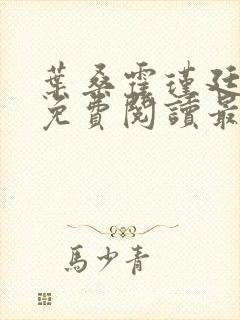 葉桑霍瑾廷
免費閱讀最
馬少青